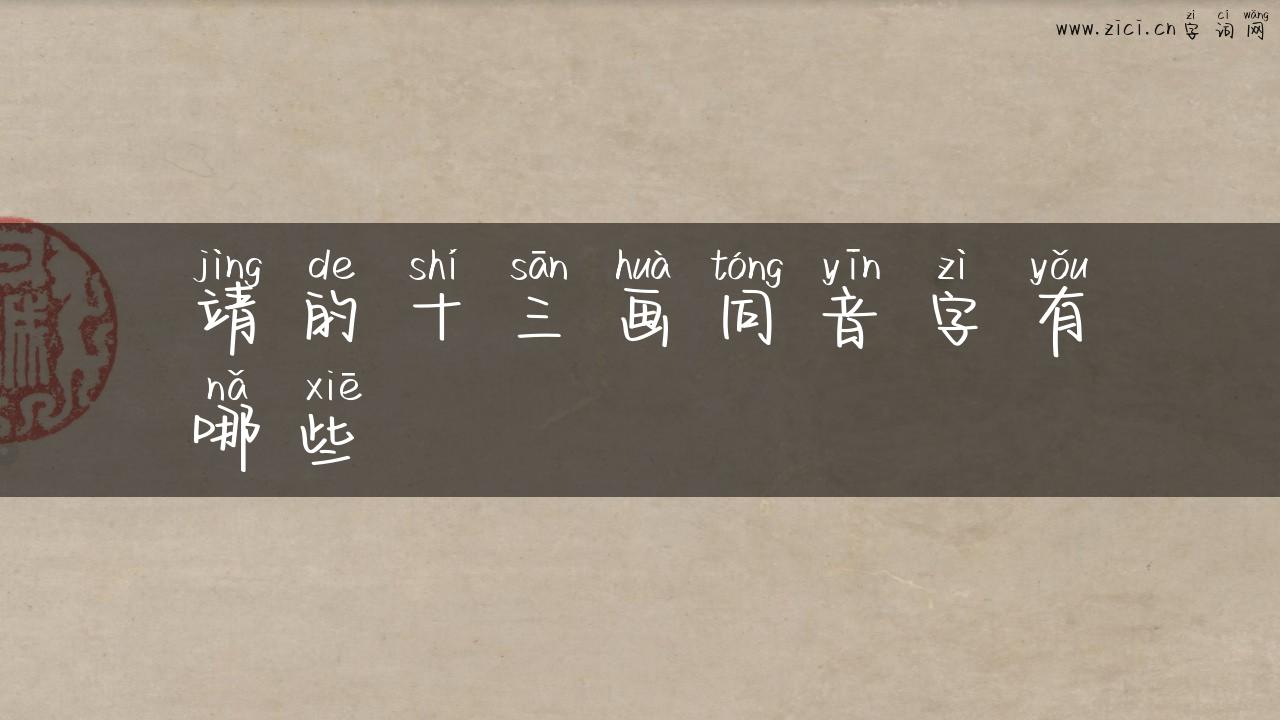 zì cí wǎng
www.zici.cn 字词网
jìng de shí sān huà tóng yīn zì yǒu
靖的十三画同音字有
nǎ xiē
哪些